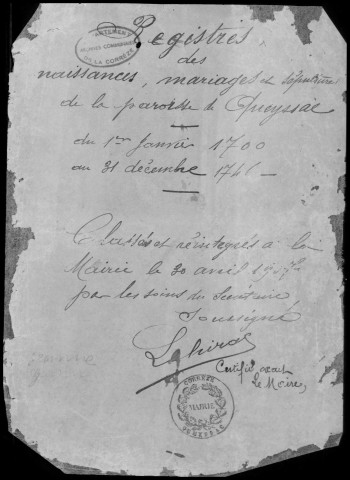 Registres
DEPARTEMENT
ARCHIVES COMMUNALES
DE LA CORREZE
des
naissances, mariages et sépultures
de la paroisse de Queyssac
du 1er Janvier 1700
au 31 décembre 1746
Classés et réintégrés à la
Mairie le 30 avril
par les soins du Secrétaire
Soussigné
Certifié exact
Le Maire,
CORREZE
MAIRIE
QUEYSSAC